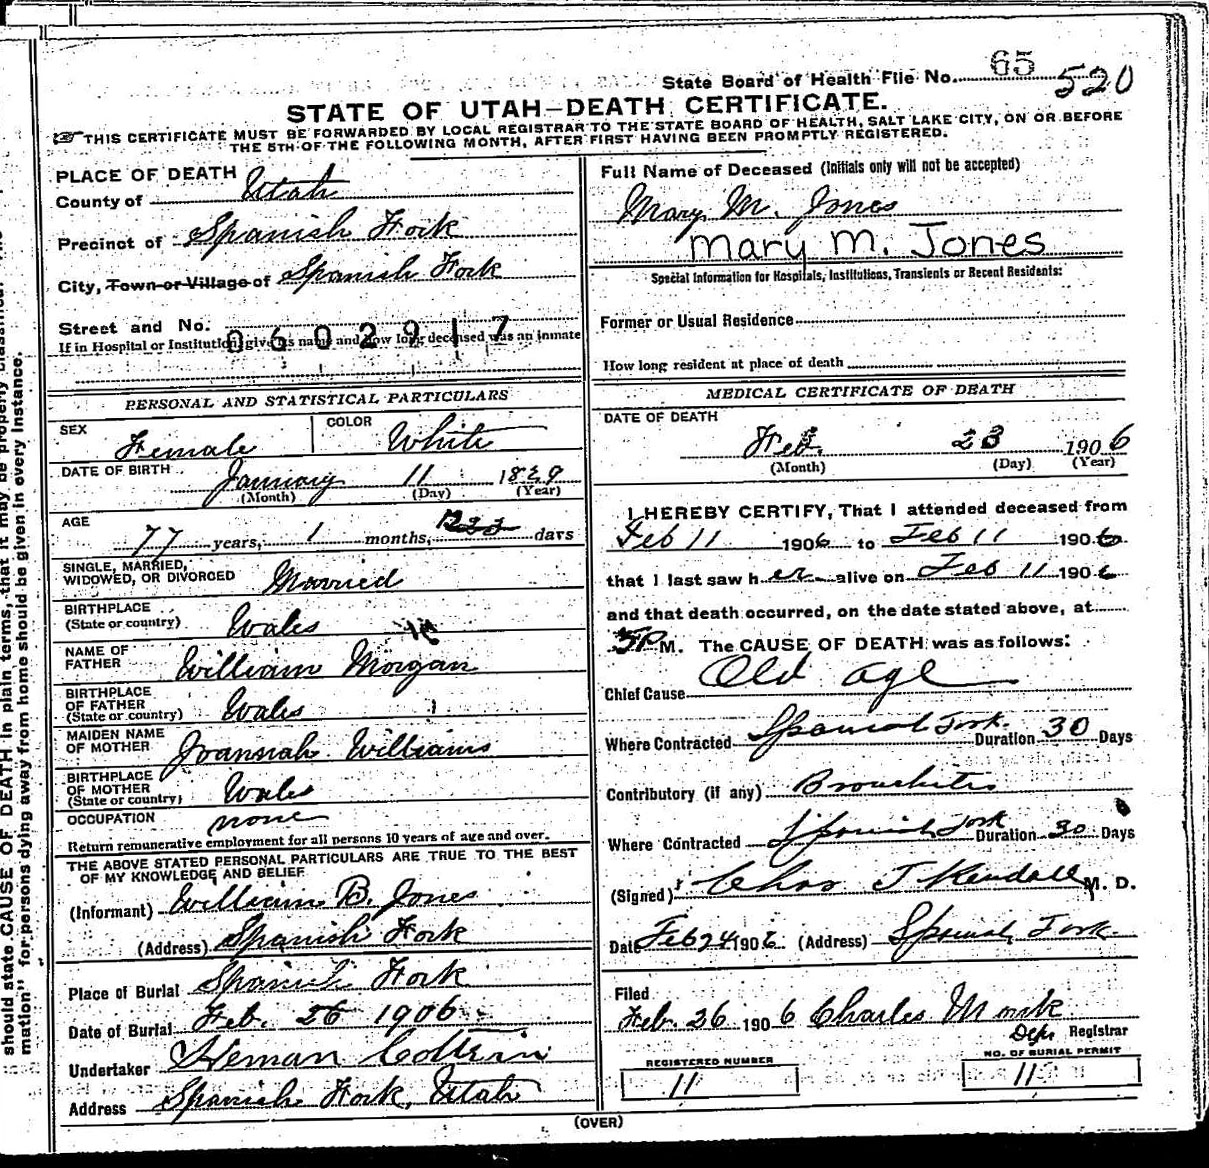 State Board of Health File No. 65 520
STATE OF UTAH—DEATH CERTIFICATE.
THIS CERTIFICATE MUST BE FORWARDED BY LOCAL REGISTRAR TO THE STATE BOARD OF HEALTH, SALT LAKE CITY, ON OR BEFORE
THE 5TH OF THE FOLLOWING MONTH, AFTER FIRST HAVING BEEN PROMPTLY REGISTERED.
PLACE OF DEATH
County of Utah
Precinct of Spanish Fork
City, Town or Village of Spanish Fork
Street and No.
0602917
If in Hospital or Institution, give its name and how long deceased was an inmate
PERSONAL AND STATISTICAL PARTICULARS
SEX Female COLOR White
DATE OF BIRTH January 11 1829
(Month) (Day) (Year)
AGE
77 years, 1 months, 12 days
SINGLE, MARRIED,
WIDOWED, OR DIVORCED Married
BIRTHPLACE
(State or country) Wales
NAME OF
FATHER William Morgan
BIRTHPLACE
OF FATHER
(State or country) Wales
MAIDEN NAME
OF MOTHER Joannah Williams
BIRTHPLACE
OF MOTHER
(State or country) Wales
OCCUPATION none
Return remunerative employment for all persons 10 years of age and over.
THE ABOVE STATED PERSONAL PARTICULARS ARE TRUE TO THE BEST
OF MY KNOWLEDGE AND BELIEF
(Informant) William B. Jones
(Address) Spanish Fork
Place of Burial Spanish Fork
Date of Burial Feb. 26 1906
Undertaker Heman Coltrin
Address Spanish Fork, Utah
Full Name of Deceased (Initials only will not be accepted)
Mary M. Jones
Mary M. Jones
Special Information for Hospitals, Institutions, Transients or Recent Residents:
Former or Usual Residence
How long resident at place of death
MEDICAL CERTIFICATE OF DEATH
DATE OF DEATH
Feb. 23 1906
(Month) (Day) (Year)
I HEREBY CERTIFY, That I attended deceased from
Feb 11 1906 to Feb 11 1906
that I last saw her alive on Feb 11 1906
and that death occurred, on the date stated above, at
5P M. The CAUSE OF DEATH was as follows:
Chief Cause Old age
Where Contracted Spanish Fork. Duration 30 Days
Contributory (if any) Bronchitis
Where Contracted Spanish Fork Duration 30 Days
(Signed) Chas J Kendall, M. D.
Date Feb 24 1906 (Address) Spanish Fork.
Filed
Feb. 26 1906 Charles Monk
Dep. Registrar
REGISTERED NUMBER
11
NO. OF BURIAL PERMIT
11
(OVER)
should state CAUSE OF DEATH in plain terms, that it may be properly classified.
mation" for persons dying away from home should be given in every instance.